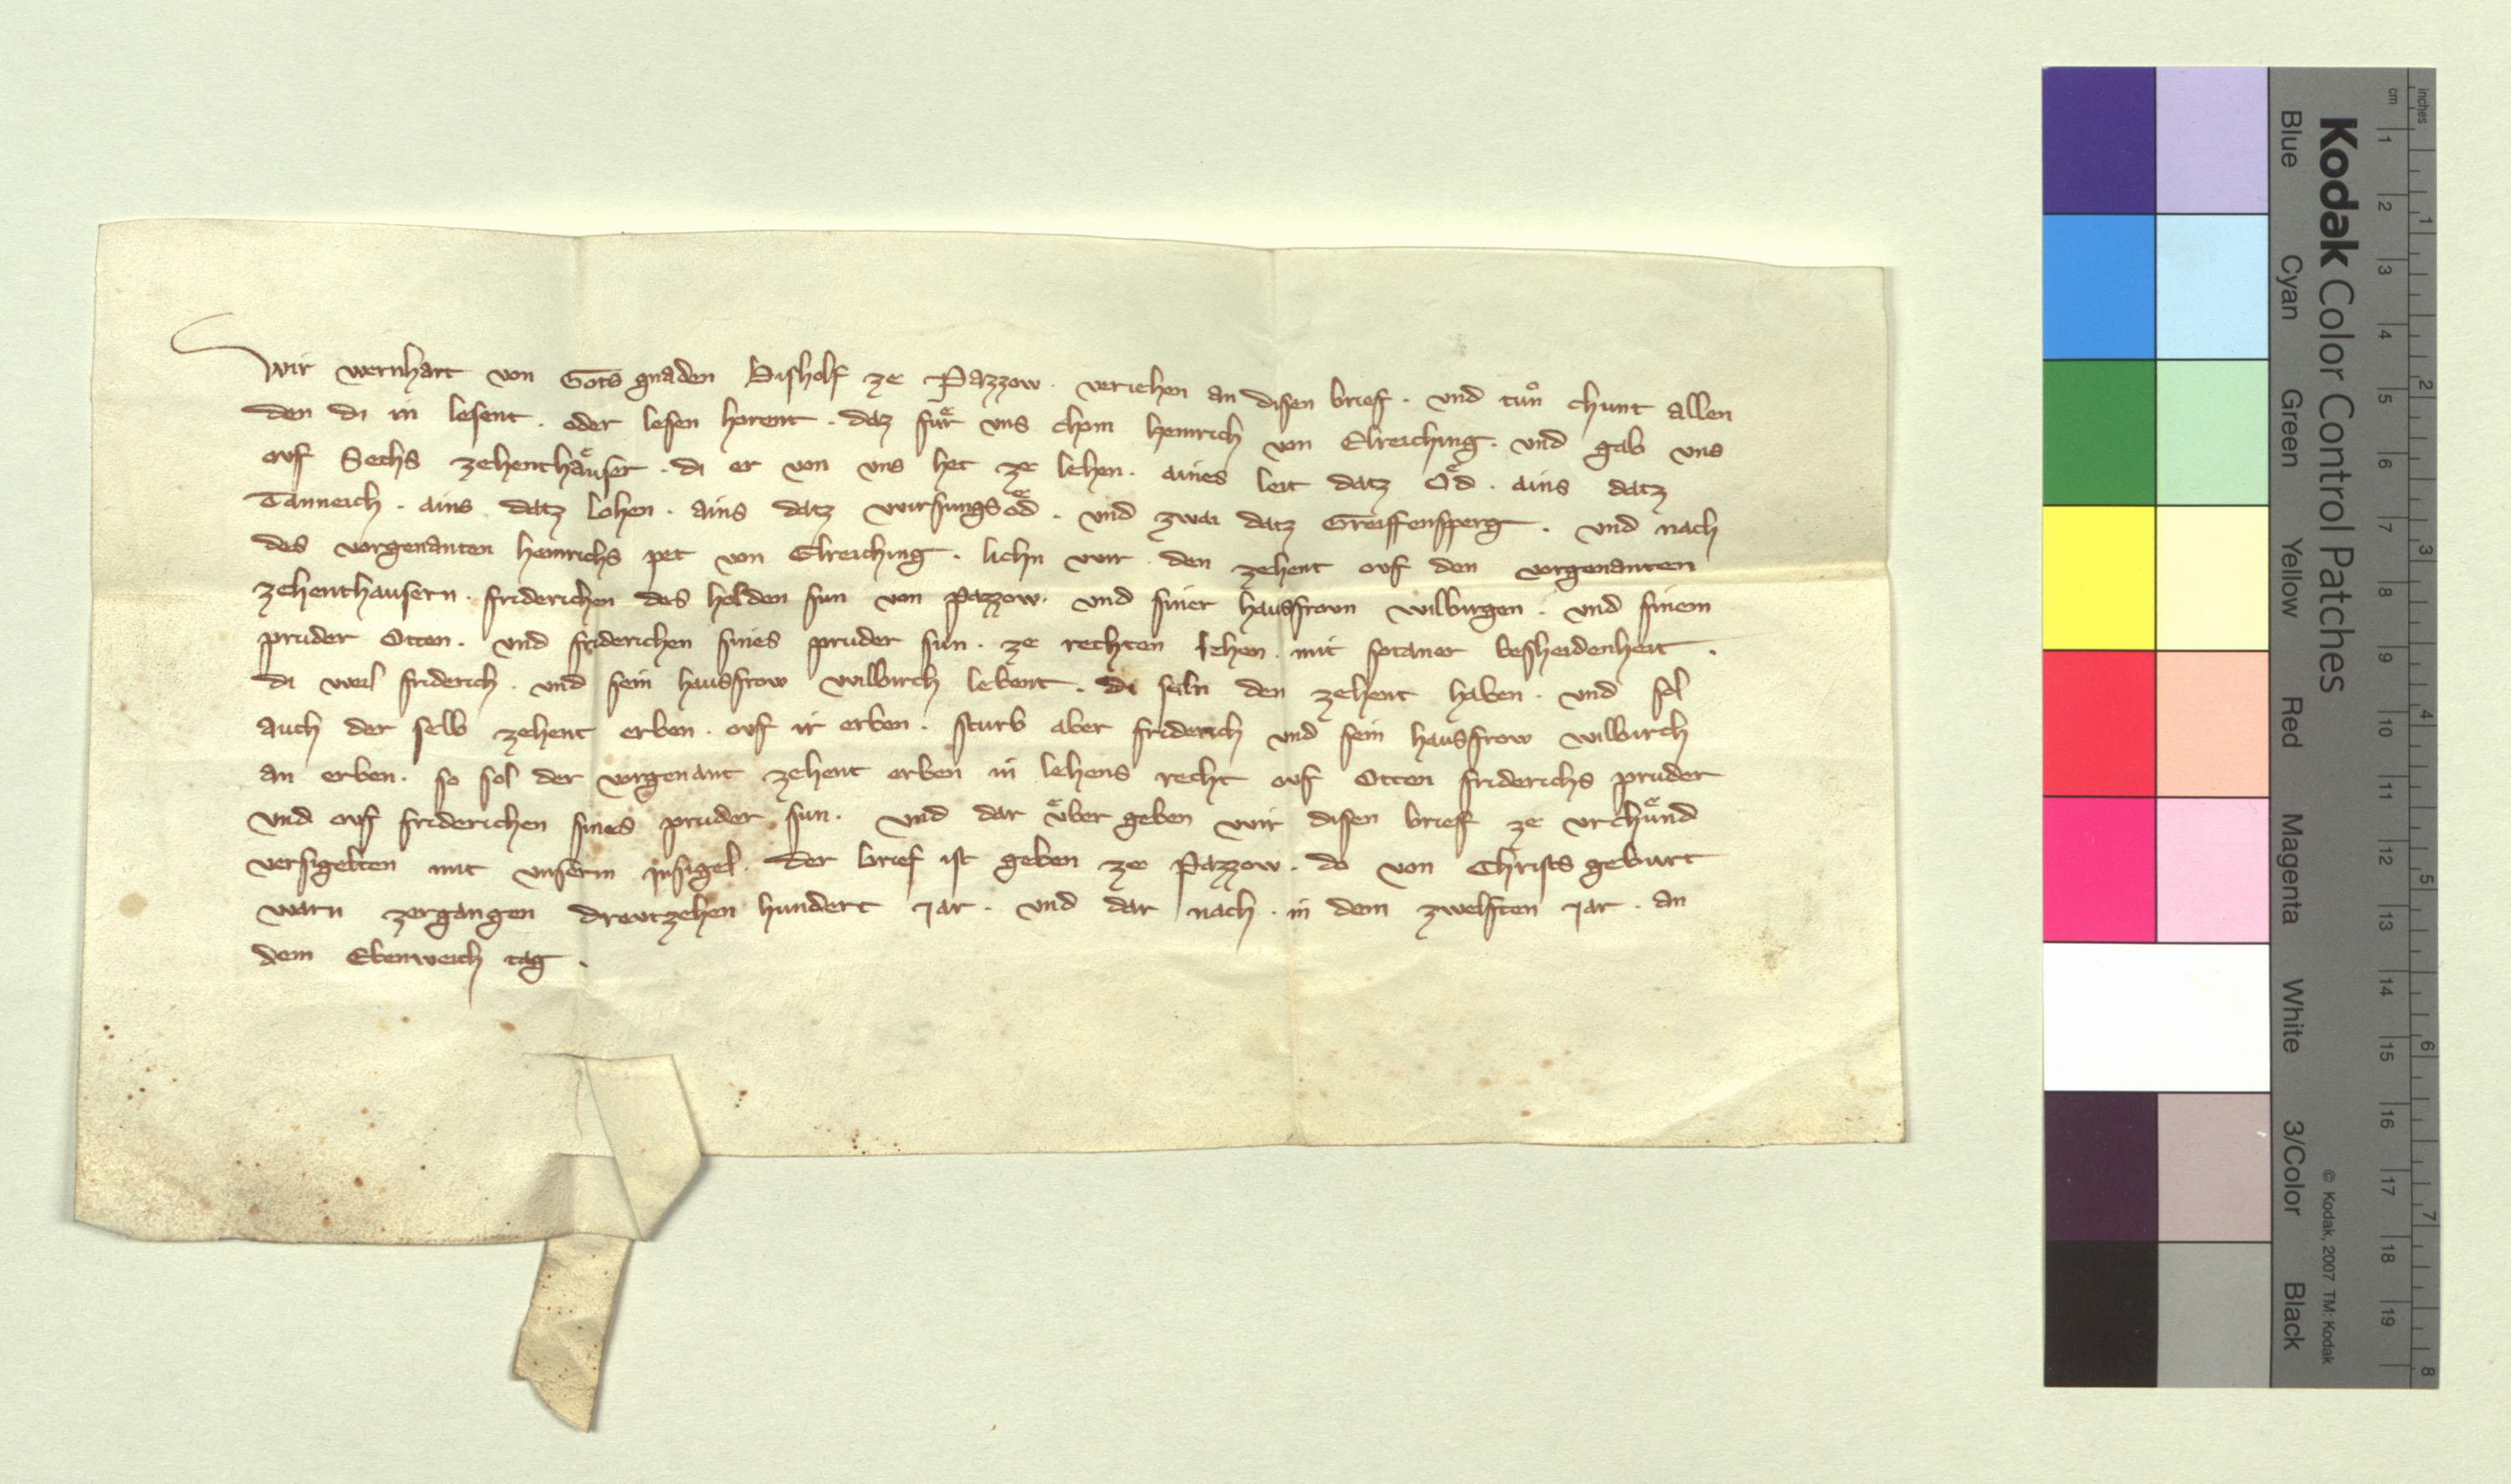 Wir wernhart von Gots gnaden Bisholf ze Pazzow · veriehen an disen brief · und tuͦn chunt allen
den di in lesent · oder lesen horent · daz fuͤr uns chom heinrich von Elreiching · und gab uns
ovf Sechs zehenthaͤuser · di er von uns het ze lehen · aines leit datz Oͤd · ains datz
Tanneich · ains datz lohen · ains datz wursungsoͤd · und zwai datz Greiffensperg · und nach
des vorgenanten heinrichs pet von Elreiching · lichn wir den zehent ovf den vorgenanten
zehenthausern · friderichen des holden sun von pazzow · und siner hausfrovn wilbirgen · und sinem
pruder Otten · und friderichen sines pruder sun · ze rechten lehen · mit sotaner besheidenheit ·
di weil friderich · und sein hausfrow wilbirch lebent · di suln den zehent haben · und sol
auch der selb zehent erben · ovf ir erben · sturb aber friderich und sein hausfrow wilbirch
an erben · so sol der vorgenant zehent erben in lehens recht ovf Otten friderichs pruder
und ovf friderichen sines pruder sun · und dar uͤber geben wir disen brief ze urchuͤnd
versigelten mit unserm insigel · der brief ist geben ze Pazzow · do von Christs geburt
warn zergangen dreutzehen hundert iar · und dar nach · in dem zwelften iar · an
dem Ebenweich tag ·
Kodak Color Control Patches
Blue Cyan Green Yellow Red Magenta White 3/Color Black
© Kodak, 2007 TM: Kodak
cm 1 2 3 4 5 6 7 8 9 10 11 12 13 14 15 16 17 18 19
inches 1 2 3 4 5 6 7 8